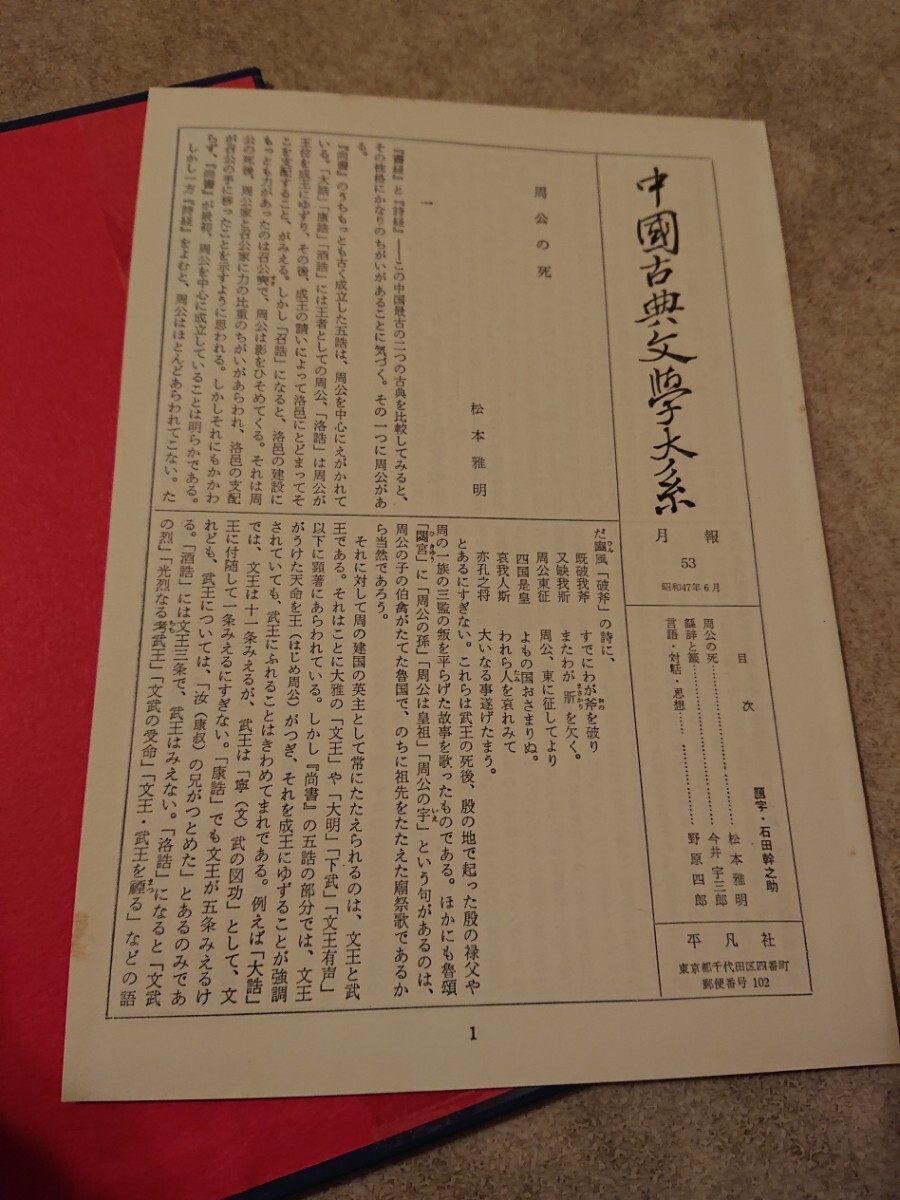 中國古典文學大系
月報
53
昭和47年6月
目次
周公の死……………………松本雅明
繇辞と籤……………………今井宇三郎
言語・対話・思想……………野原四郎
題字・石田幹之助
平凡社
東京都千代田区四番町
郵便番号 102
周公の死
松本雅明
一
『書経』と『詩経』――この中国最古の二つの古典を比較してみると、
その性格にかなりのちがいがあることに気づく。その一つに周公があ
る。
『尚書』のうちもっとも古く成立した五誥は、周公を中心にえがかれて
いる。「大誥」「康誥」「酒誥」には王者としての周公、「洛誥」は周公が
王位を成王にゆずり、その後、成王の請いによって洛邑にとどまってそ
こを支配すること、がみえる。しかし「召誥」になると、洛邑の建設に
もっとも力があったのは召公奭で、周公は影をひそめてくる。それは周
公の死後、周公家と召公家に力の比重のちがいがあらわれ、洛邑の支配
が召公の手に移ったことを示すように思われる。しかしそれにもかかわ
らず、『尚書』が最初、周公を中心に成立していることは明らかである。
しかし一方『詩経』をよむと、周公はほとんどあらわれてこない。た
だ豳風「破斧」の詩に、
既破我斧 すでにわが斧を破り
又缺我斨 またわが斨を欠く。
周公東征 周公、東に征してより
四国是皇 よもの国おさまりぬ。
哀我人斯 われら人を哀れみて
亦孔之将 大いなる事遂げたまう。
とあるにすぎない。これらは武王の死後、殷の地で起った殷の禄父や
周の一族の三監の叛を平らげた故事を歌ったものである。ほかにも魯頌
「閟宮」に「周公の孫」「周公は皇祖」「周公の宇」という句があるのは、
周公の子の伯禽がたてた魯国で、のちに祖先をたたえた廟祭歌であるか
ら当然であろう。
それに対して周の建国の英主として常にたたえられるのは、文王と武
王である。それはことに大雅の「文王」や「大明」「下武」「文王有声」
以下に顕著にあらわれている。しかし『尚書』の五誥の部分では、文王
がうけた天命を王（はじめ周公）がつぎ、それを成王にゆずることが強調
されていても、武王にふれることはきわめてまれである。例えば「大誥」
では、文王は十一条みえるが、武王は「寧（文）武の図功」として、文
王に付随して一条みえるにすぎない。「康誥」でも文王が五条みえるけ
れども、武王については、「汝（康叔）の兄がつとめた」とあるのみであ
る。「酒誥」には文王三条で、武王はみえない。「洛誥」になると「文武
の烈」「光烈なる考武王」「文武の受命」「文王・武王を禋る」などの語
1